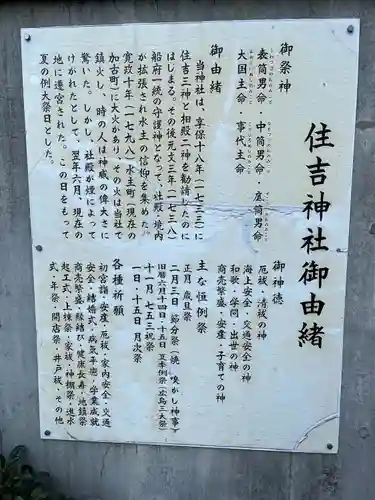 住吉神社御由緒
御祭神
表筒男命・中筒男命・底筒男命
大国主命・事代主命
御由緒
当神社は、享保十八年(一七三三)に
住吉三神と相殿二神を勧請したのに
はじまる。その後元文三年(一七三八)
船府一統の守護神となって、社殿・境内
が拡張され水主の信仰を集めた。
寛政十年(一七九八)水主町(現在の
加古町)に大火があり、その火は当社で
鎮火し、時の人は神威の偉大さに
驚いた。しかし、社殿が煙によって
けがれたとして、翌年六月、現在の
地に遷宮された。この日をもって
夏の例大祭日とした。
御神徳
厄祓・清祓の神
海上安全・交通安全の神
和歌・学問・出世の神
商売繁盛・安産・子育ての神
主な恒例祭
正月 歳旦祭
二月三日 節分祭(焼 嗅がし神事)
旧暦六月十四日・十五日 夏季例祭(広島三大祭)
十一月 七五三祝祭
一日・十五日 月次祭
各種祈願
初宮詣・安産・厄祓・家内安全・交通
安全・結婚式・病気平癒・学業成就
商売繁盛・縁結び・健康長寿・地鎮祭
起工式・上棟祭・家祓・神棚祭・進水
式・年祭・開店祭・井戸祓・その他